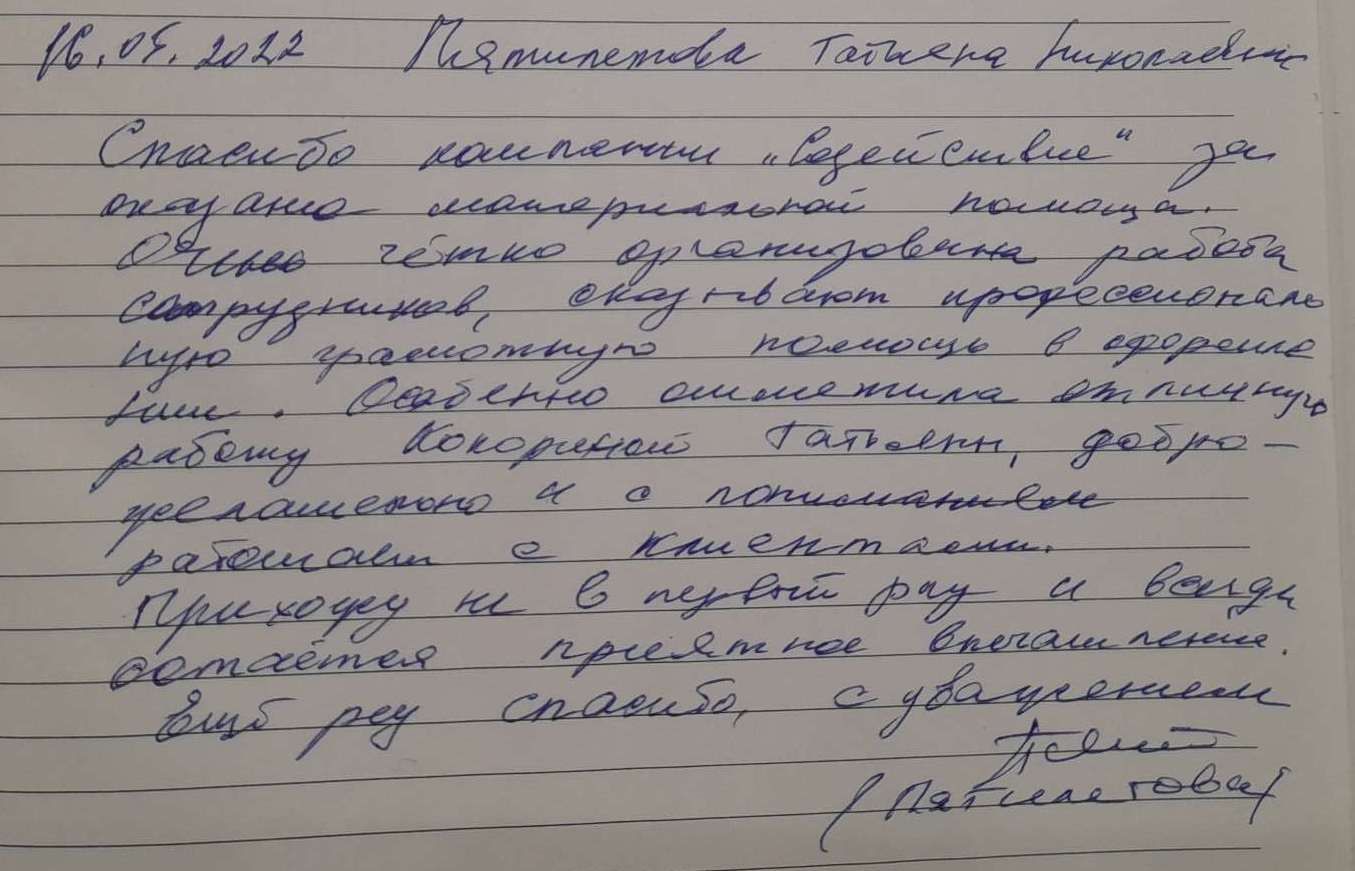 16.05.2022 Пятилетова Татьяна Николаевна
Спасибо компании „Содействие“ за
оказано материальной помощи.
Очень чётко организована работа
сотрудников, оказывают профессиональ
ную грамотную помощь в оформле
нии. Особенно отметила отличную
работу Кокориной Татьяны, добро-
желательно и с пониманием
работает с клиентами.
Прихожу не в первый раз и всегда
остаётся приятное впечатление.
Ещё раз спасибо, с уважением
(Пятилетова)